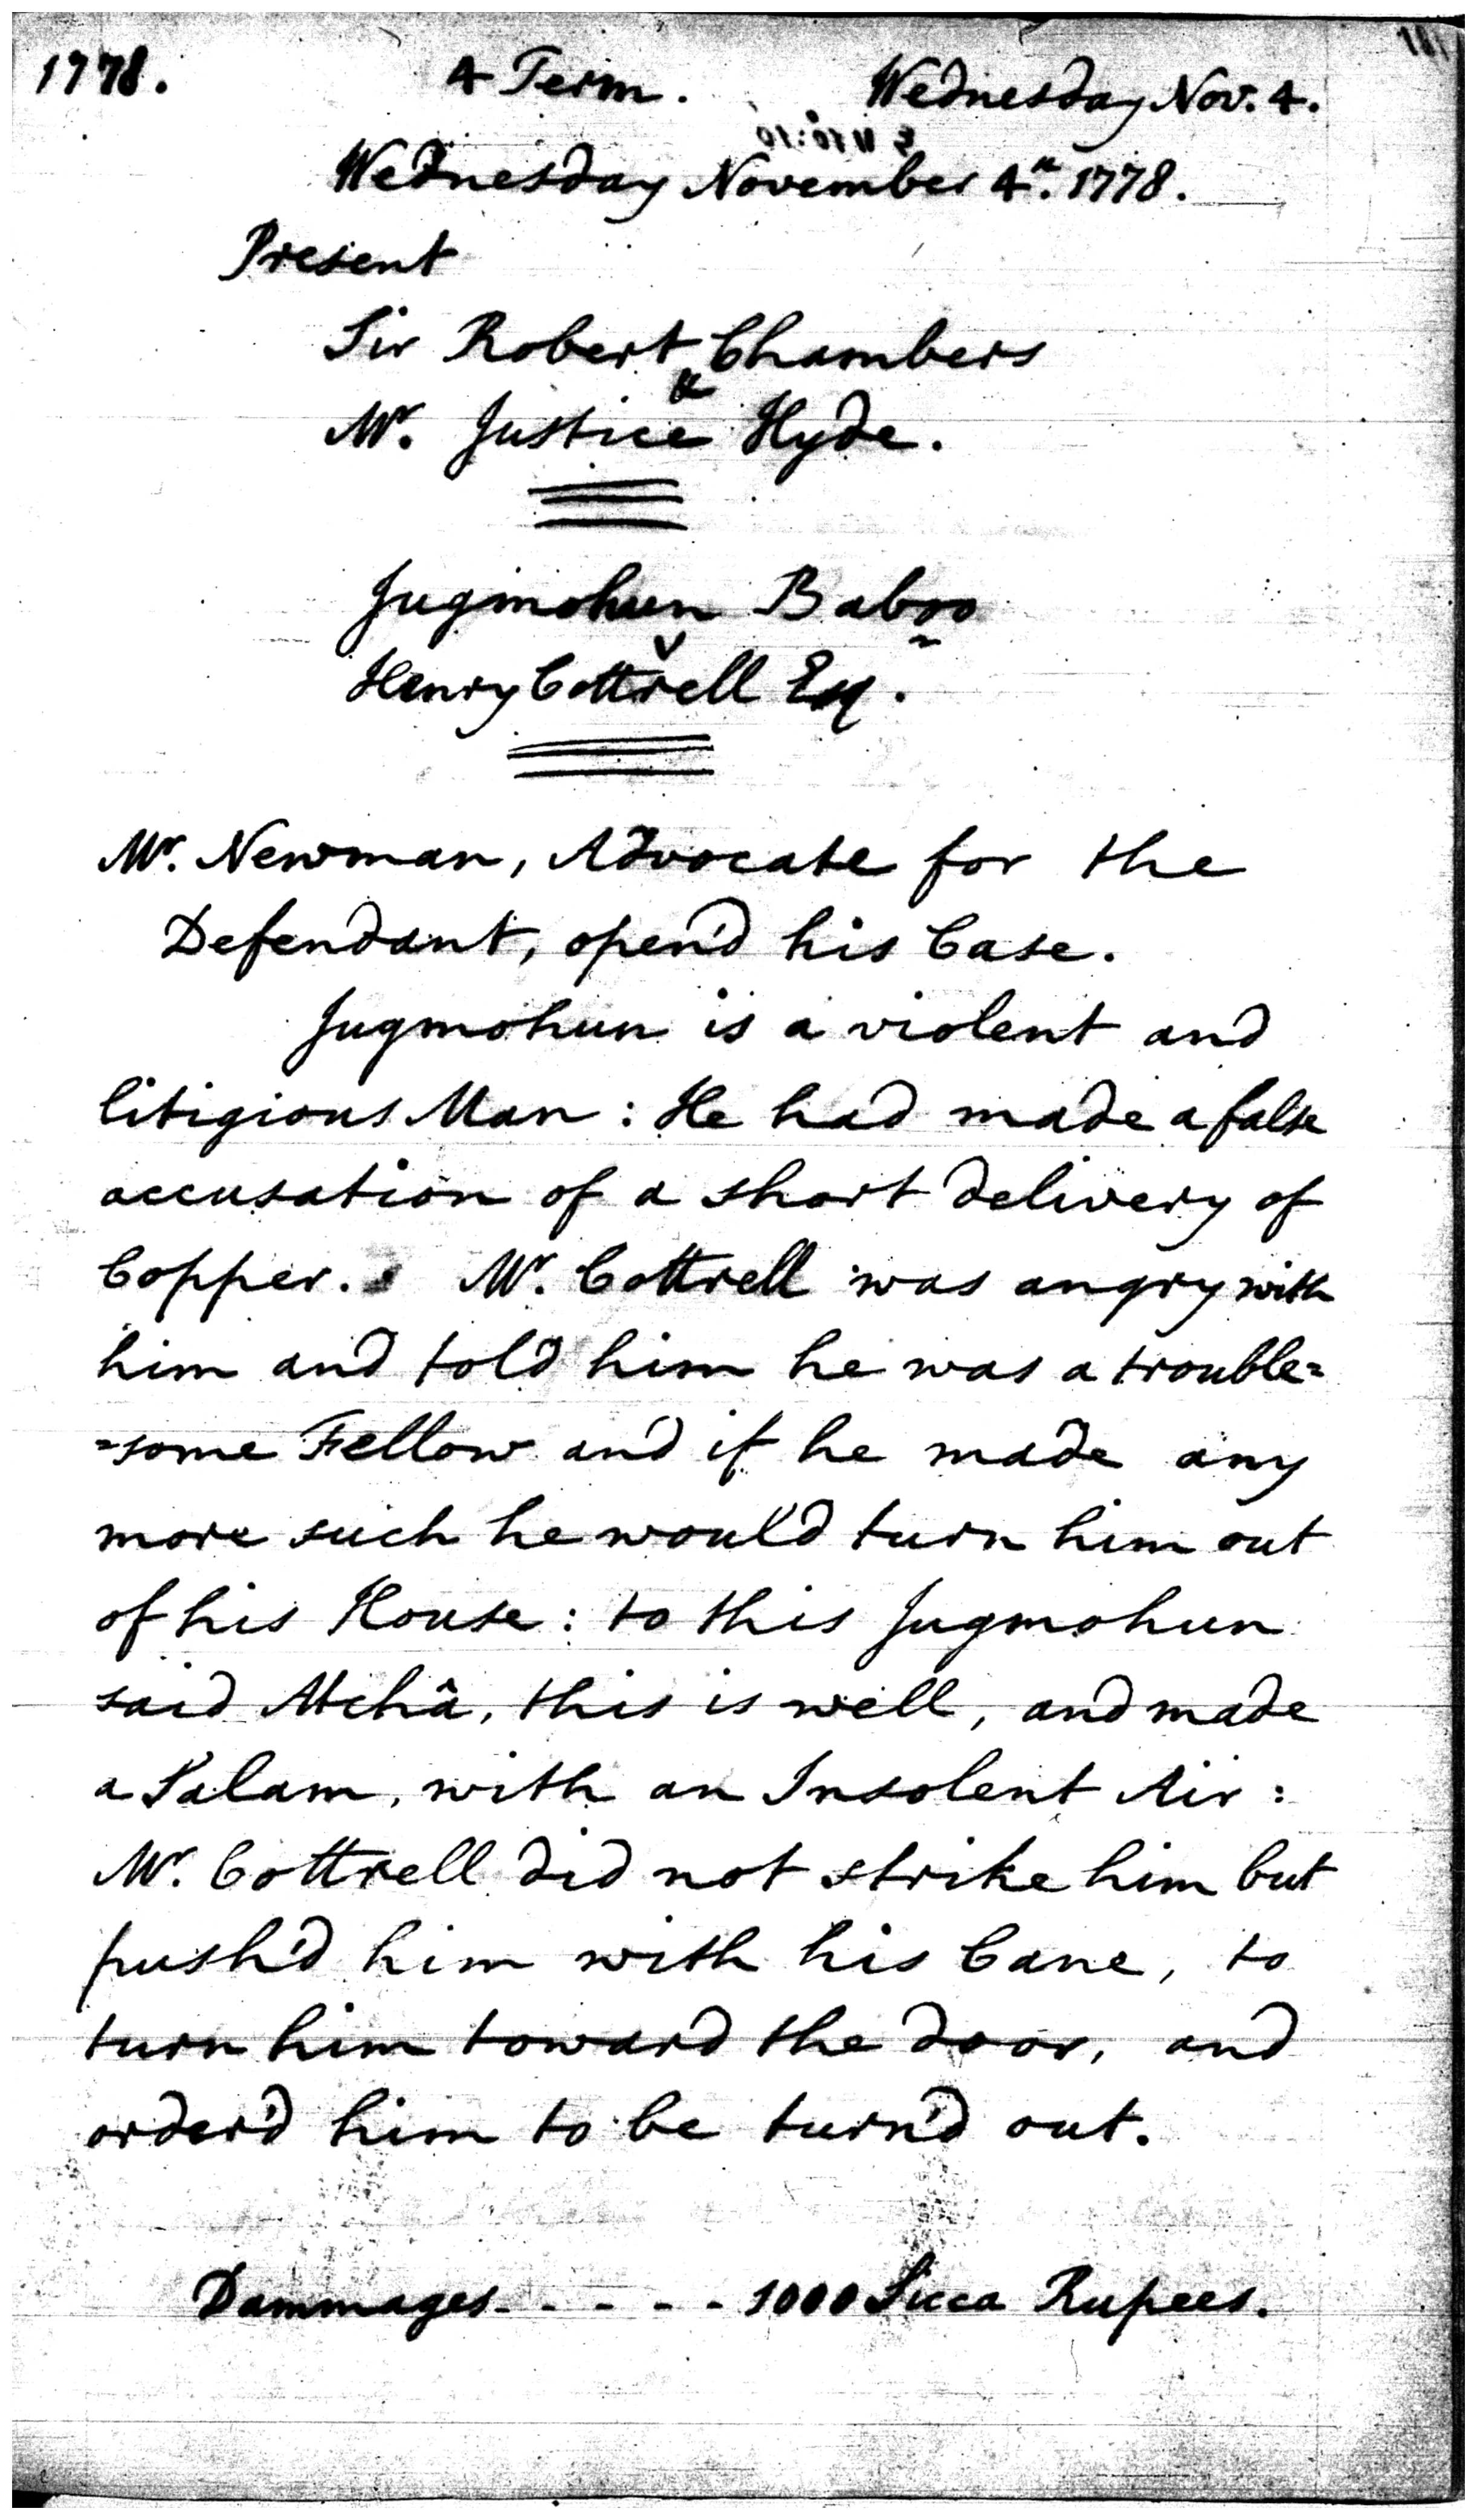 1778. 4 Term. Wednesday Nov. 4.
Wednesday November 4th. 1778.
Present
Sir Robert Chambers
&
Mr. Justice Hyde.
Jugmohun Baboo
v
Henry Cottrell Esq.
Mr. Newman, Advocate for the
Defendant, open'd his Case.
Jugmohun is a violent and
litigious Man: He had made a false
accusation of a short delivery of
Copper. Mr. Cottrell was angry with
him and told him he was a trouble=
=some Fellow and if he made any
more such he would turn him out
of his House: to this Jugmohun
said Atchâ, this is well, and made
a Salam, with an Insolent Air:
Mr. Cottrell did not strike him but
push'd him with his Cane, to
turn him toward the door, and
order'd him to be turn'd out.
Dammages - - - - - 1000 Sicca Rupees.